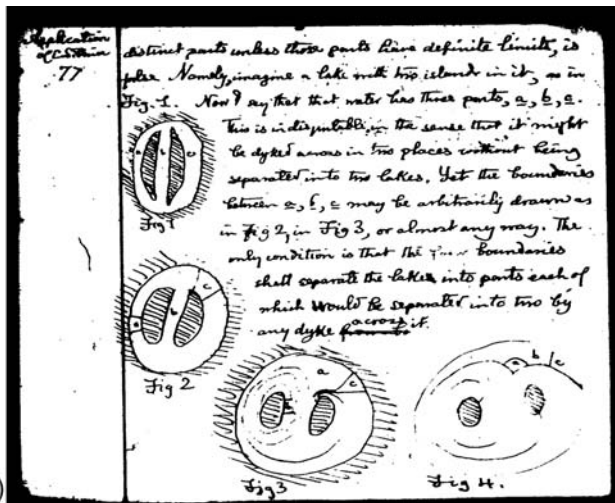 Application
77
distinct parts unless those parts have definite limits, is
false. Namely, imagine a lake with two islands in it, as in
Fig. 1. Now I say that that water has three parts, a, b, c.
This is indisputable, in the sense that it might
be dyked across in two places without being
separated into two lakes. Yet the boundaries
between a, b, c may be arbitrarily drawn as
in Fig 2, in Fig 3, or almost any way. The
only condition is that the boundaries
shall separate the lake into parts each of
which would be separated into two by
any dyke across it.
a b c
Fig 1
a b c
Fig 2
a c
Fig 3
a b c
Fig 4.